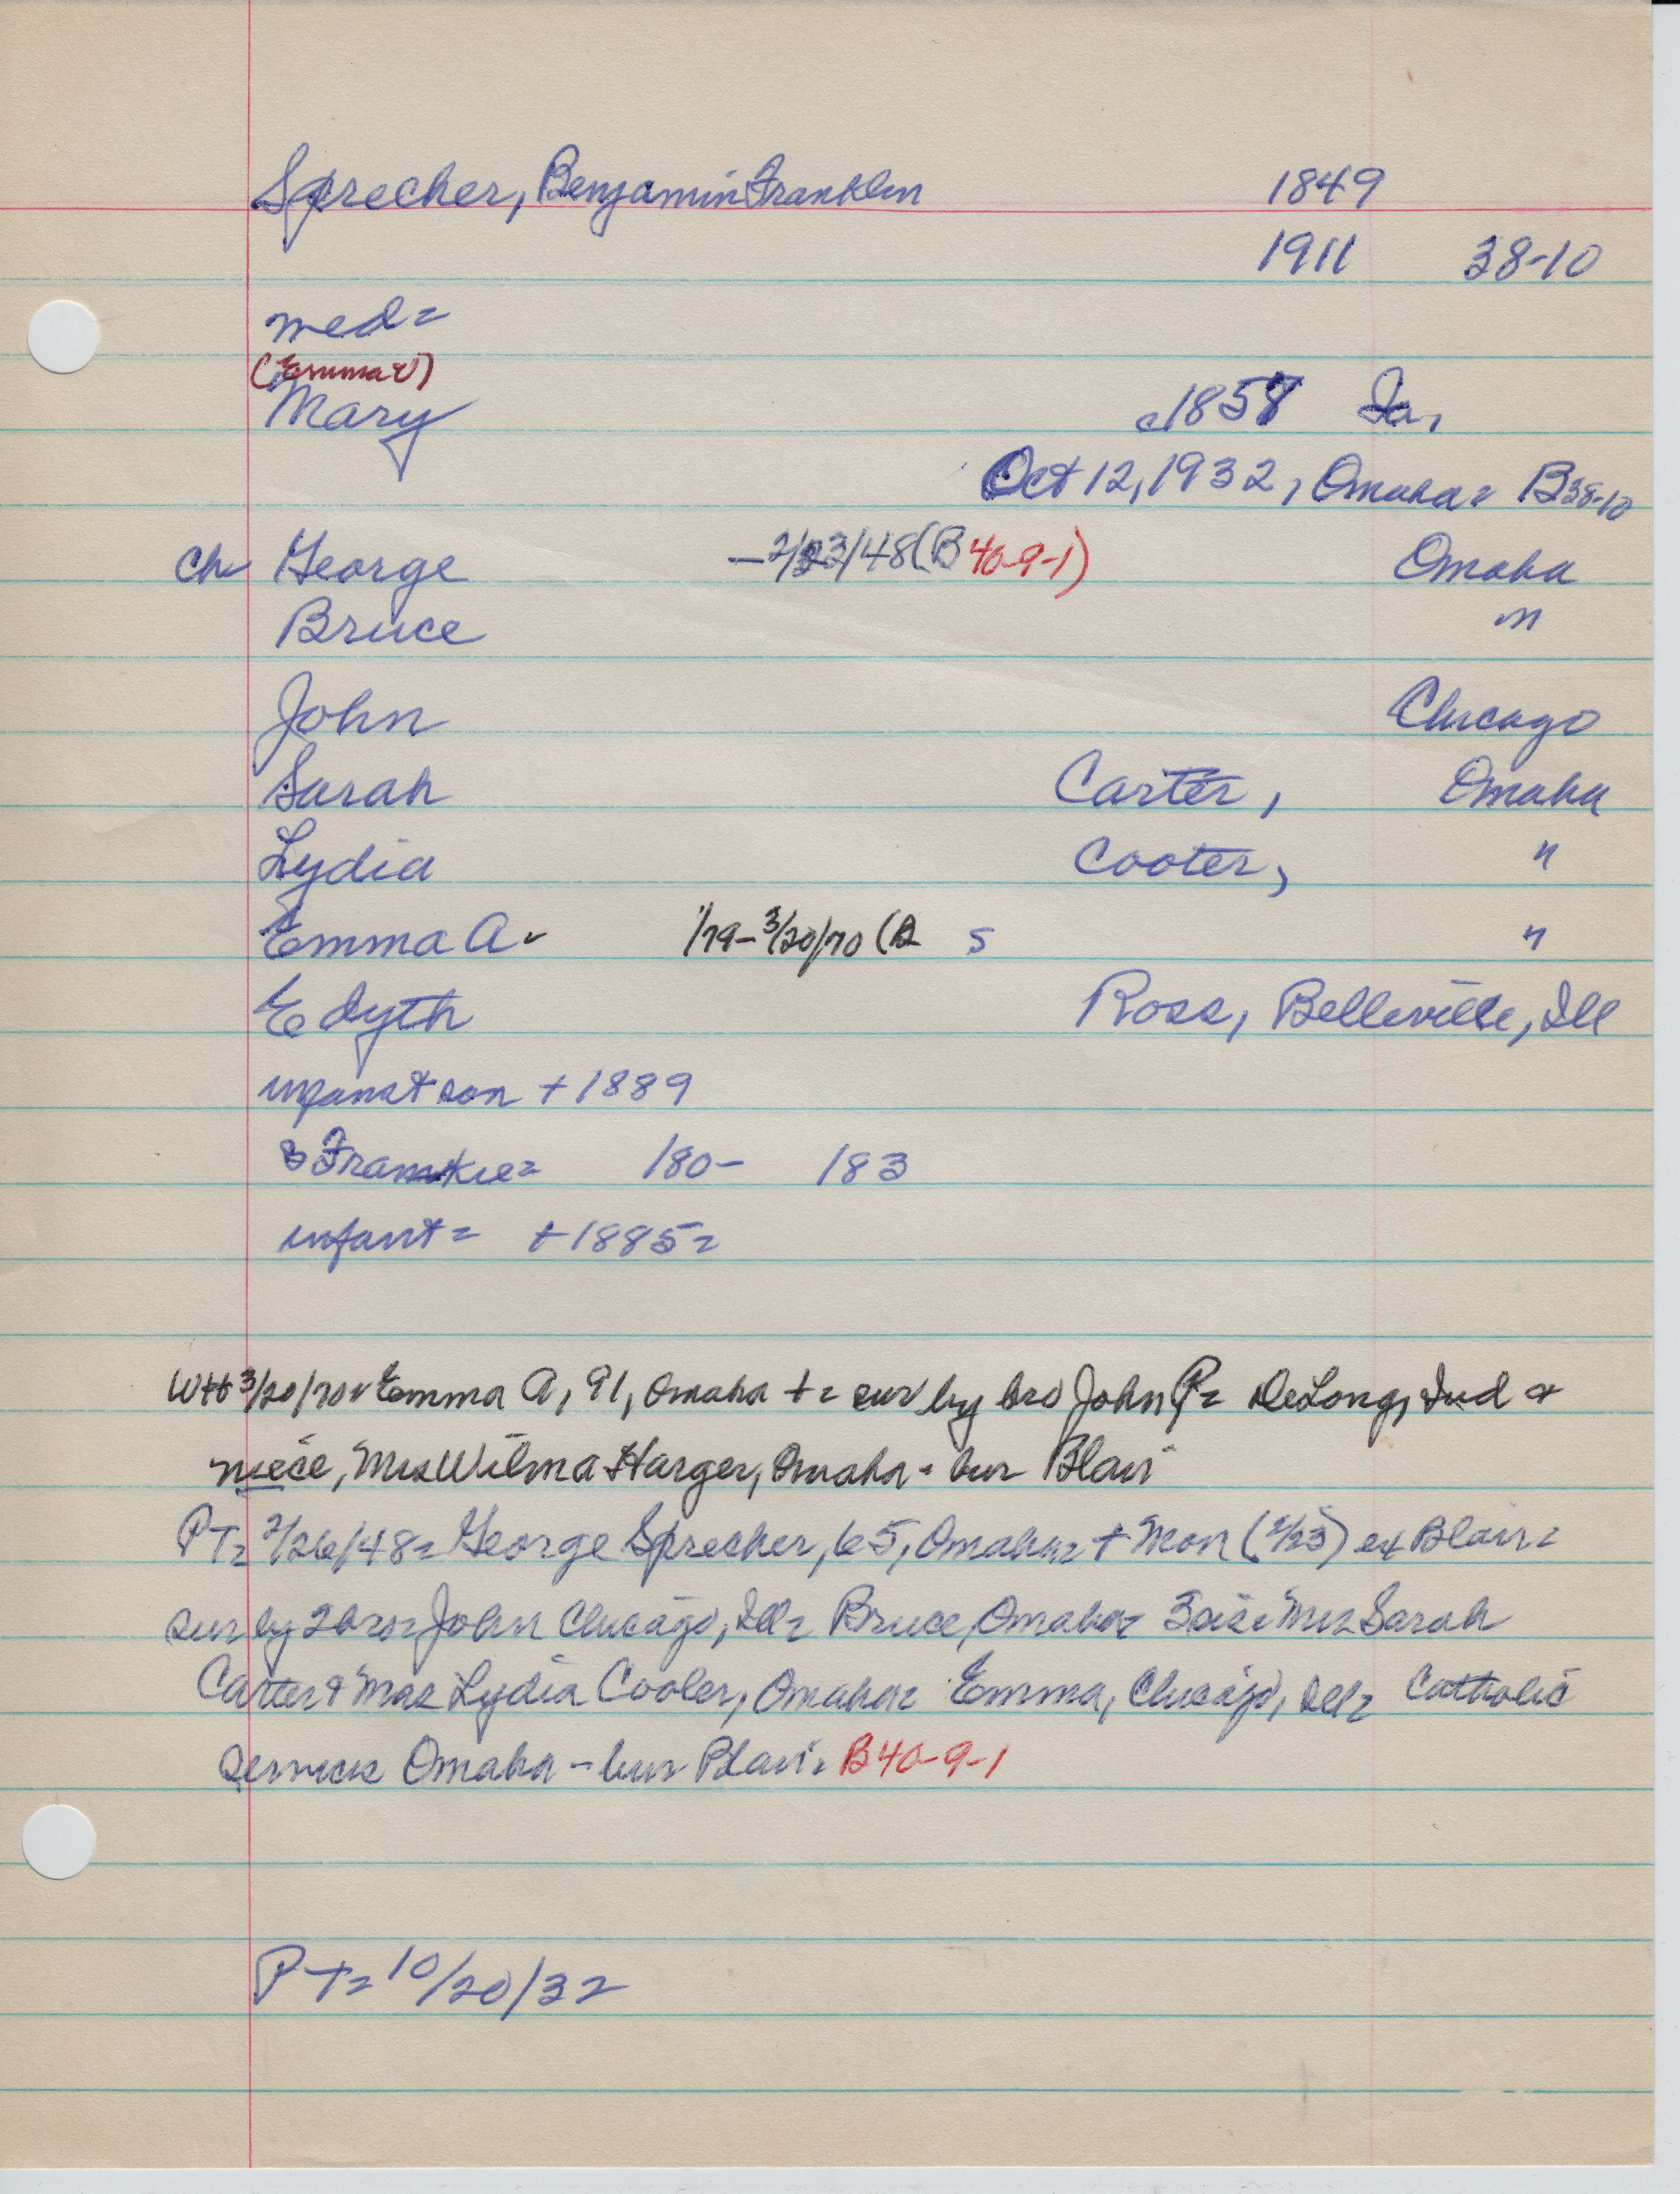 Sprecher, Benjamin Franklin 1849
1911 38-10
med=
(Emma V)
Mary c1857 Ia,
Oct 12, 1932, Omaha= B38-10
ch George —2/23/48 (B 40-9-1) Omaha
Bruce "
John Chicago
Sarah Carter, Omaha
Lydia Cooter, "
Emma A. 1/79-3/20/70 (B S "
Edyth Ross, Belleville, Ill
infant son +1889
Frankie= 180- 183
infant= +1885=
3/20/70= Emma A, 91, Omaha += sur by bro John P= DeLong, Ind &
niece, Mrs Wilma Harger, Omaha - bur Blair
PT= 2/26/48= George Sprecher, 65, Omaha= + Mon (2/23) ex Blair=
sur by 2 bro= John Chicago, Ill= Bruce, Omaha= 3 sis= Mrs Sarah
Carter & Mrs Lydia Cooler, Omaha= Emma, Chicago, Ill= Catholic
services Omaha - bur Blair= B40-9-1
PT= 10/20/32